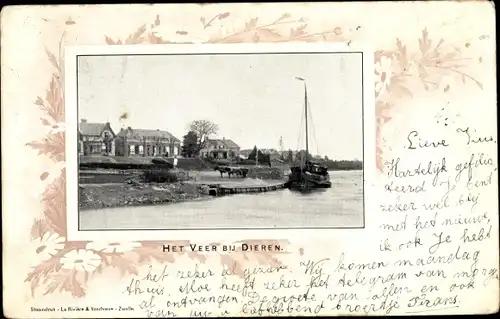 HET VEER BIJ DIEREN.
Lieve Jus,
Hartelijk gefelici
teerd Je bent
zeker wel blij
met het nieuwe,
ik ook Je hebt
het zeker al gezien. Wij komen maandag
thuis. Moe heeft zeker het telegram van morg
al ontvangen. De groete van allen en ook
van
liefhebbend broertje Frans.
Steendruk - La Rivière & Voorhoeve - Zwolle.